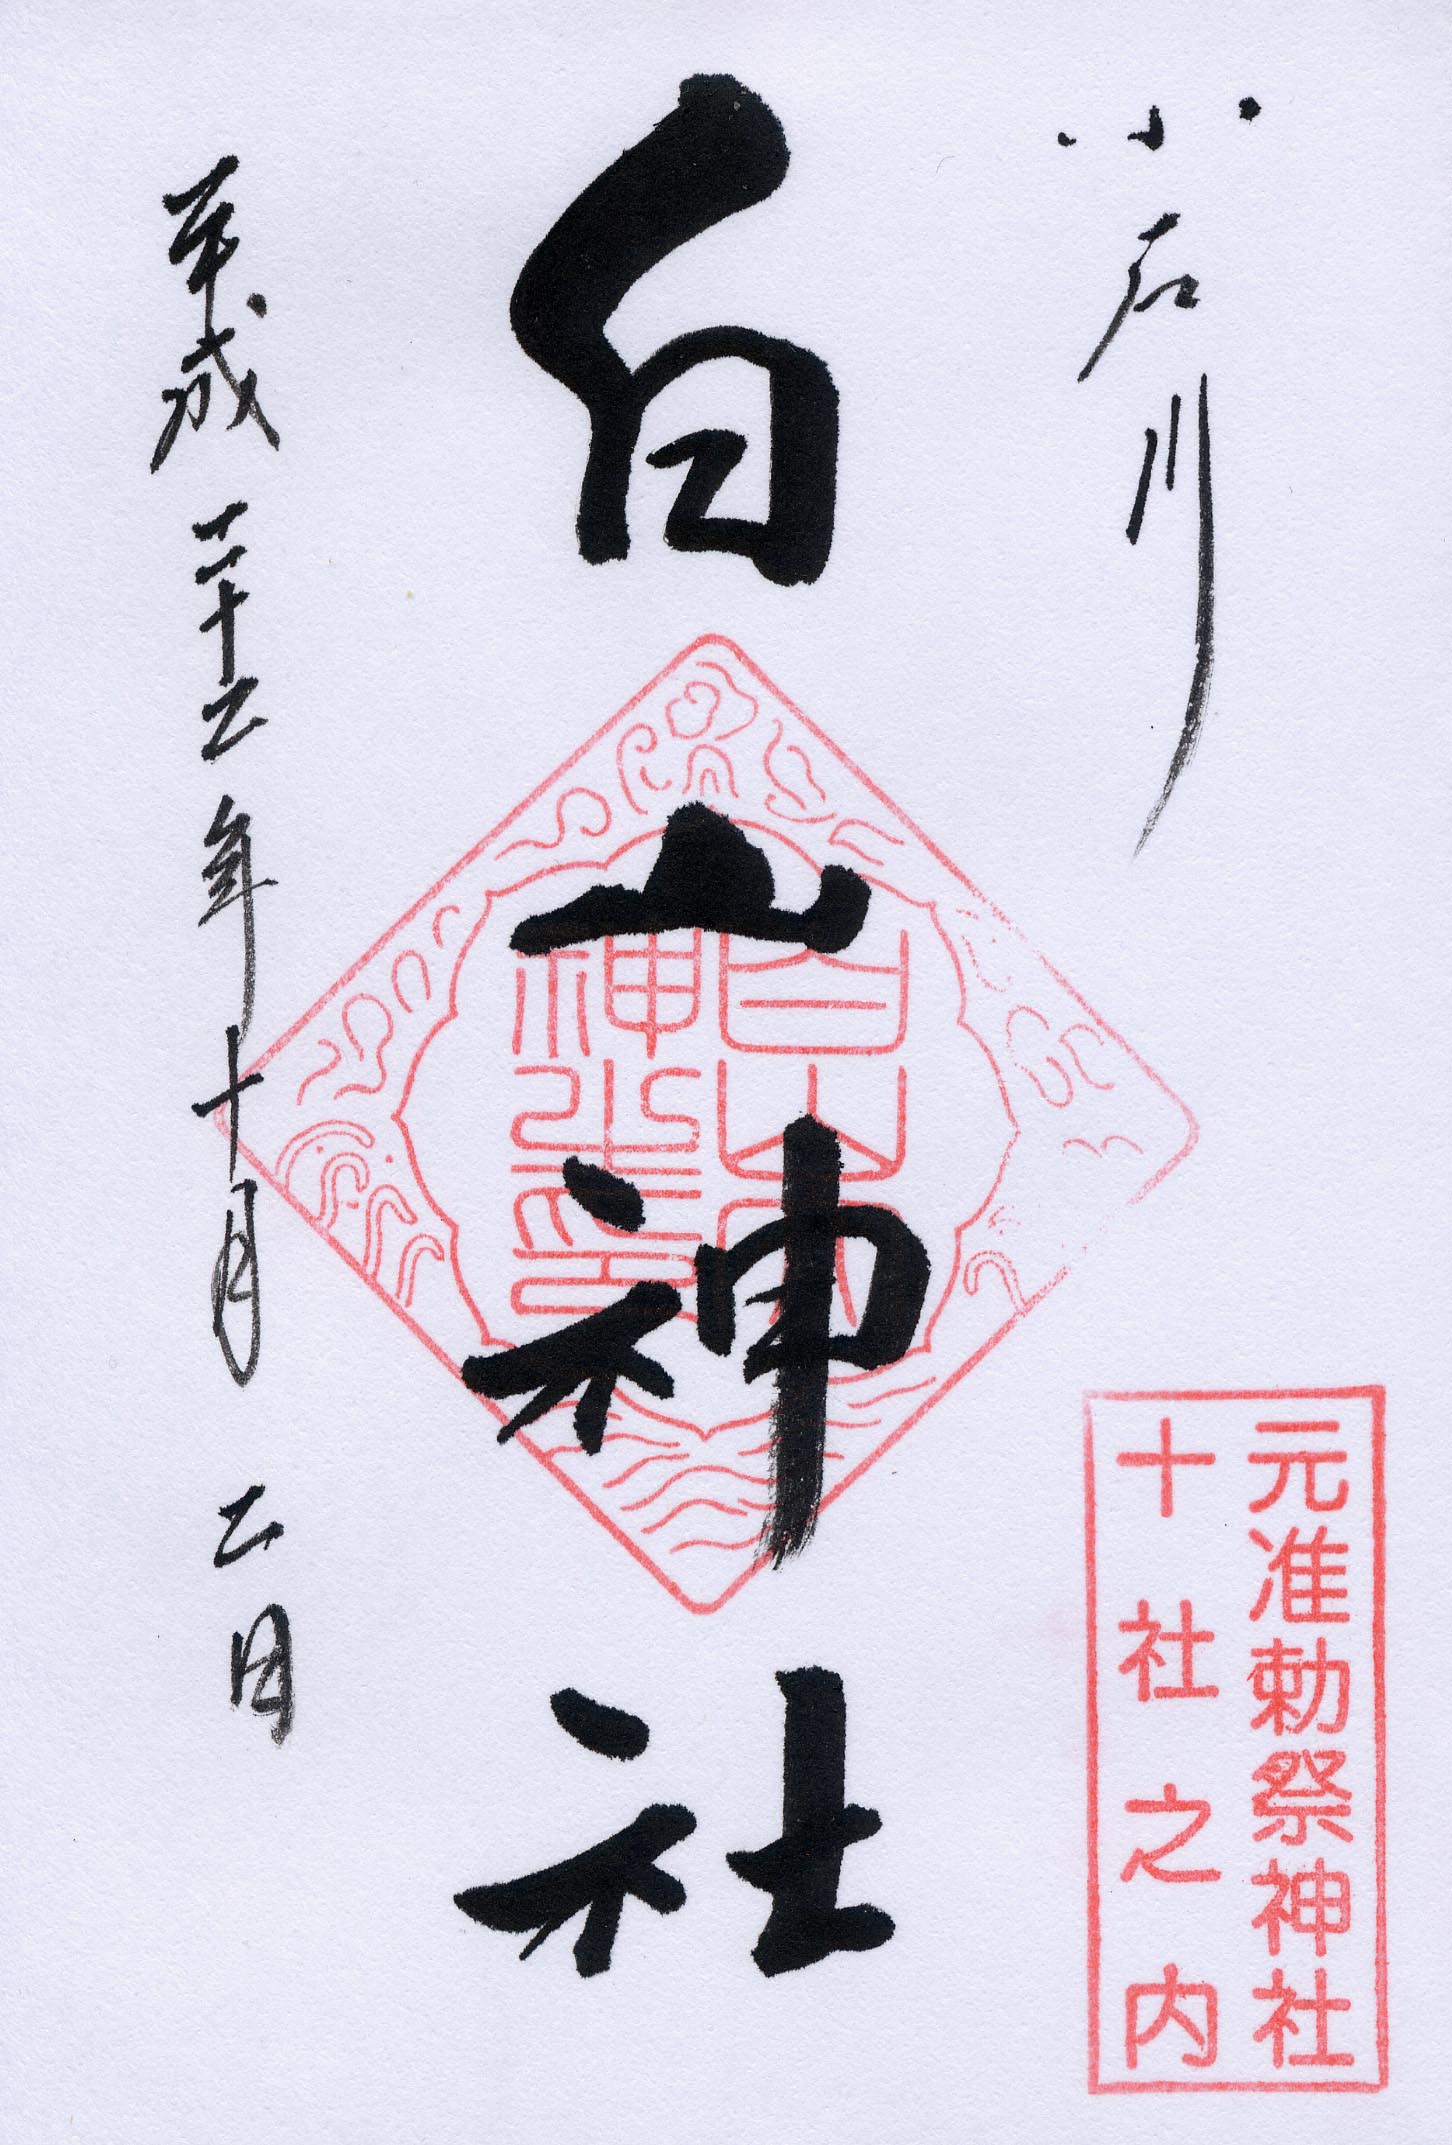 小石川
元准勅祭神社
十社之内
白山神社
平成二十三年十月二日